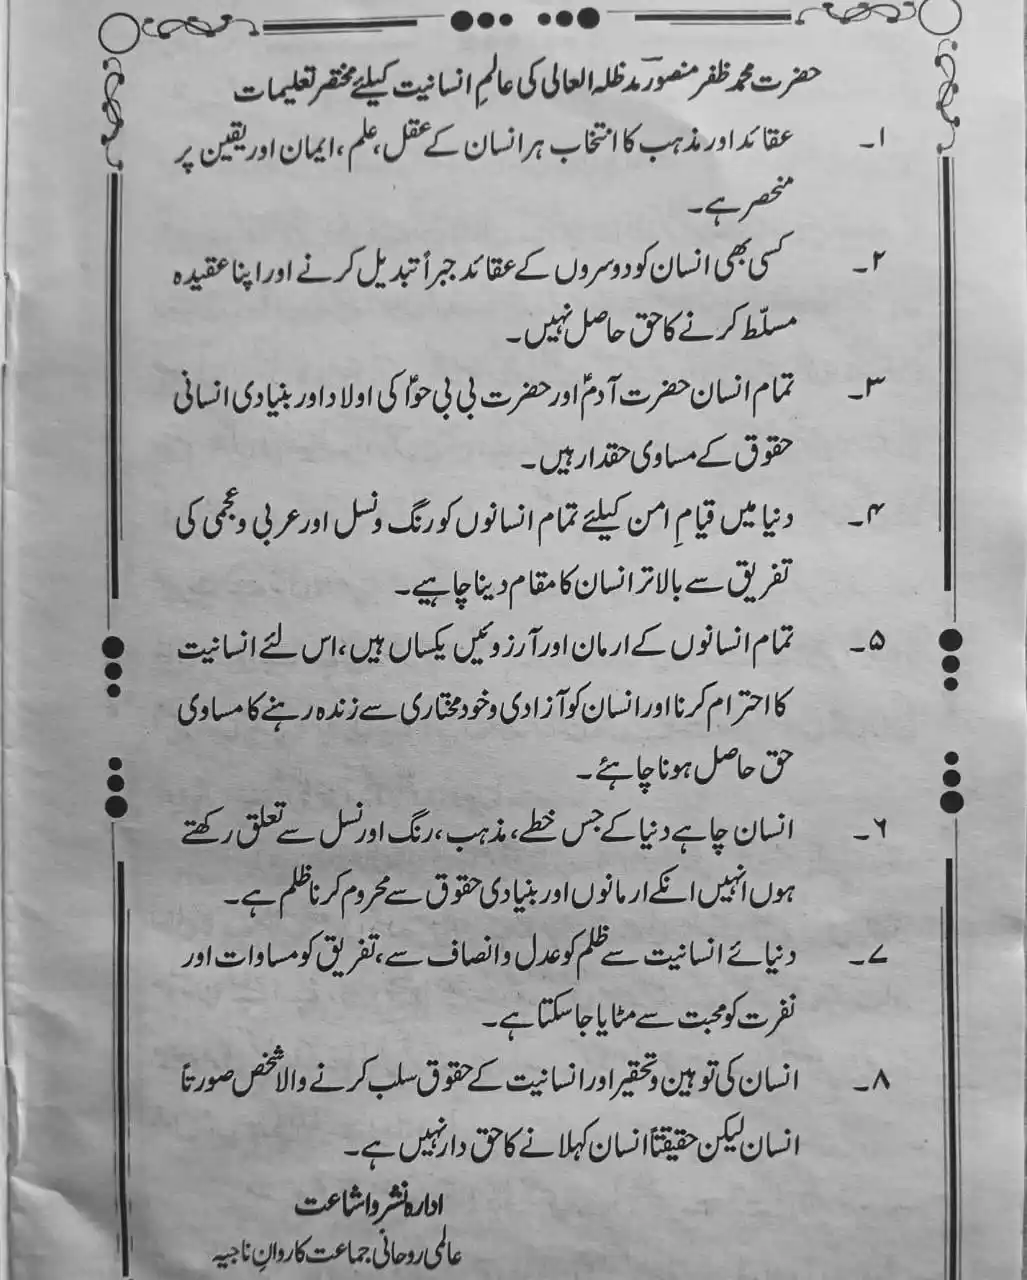 حضرت محمد ظفر منصورؔ مدظلہ العالی کی عالمِ انسانیت کیلئے مختصر تعلیمات
۱۔ عقائد اور مذہب کا انتخاب ہر انسان کے عقل، علم، ایمان اور یقین پر
منحصر ہے۔
۲۔ کسی بھی انسان کو دوسروں کے عقائد جبراً تبدیل کرنے اور اپنا عقیدہ
مسلّط کرنے کا حق حاصل نہیں۔
۳۔ تمام انسان حضرت آدمؑ اور حضرت بی بی حوّاؑ کی اولاد اور بنیادی انسانی
حقوق کے مساوی حقدار ہیں۔
۴۔ دنیا میں قیامِ امن کیلئے تمام انسانوں کو رنگ و نسل اور عربی و عجمی کی
تفریق سے بالاتر انسان کا مقام دینا چاہیے۔
۵۔ تمام انسانوں کے ارمان اور آرزوئیں یکساں ہیں، اس لئے انسانیت
کا احترام کرنا اور انسان کو آزادی و خود مختاری سے زندہ رہنے کا مساوی
حق حاصل ہونا چاہئے۔
۶۔ انسان چاہے دنیا کے جس خطے، مذہب، رنگ اور نسل سے تعلق رکھتے
ہوں انہیں انکے ارمانوں اور بنیادی حقوق سے محروم کرنا ظلم ہے۔
۷۔ دنیائے انسانیت سے ظلم کو عدل و انصاف سے، تفریق کو مساوات اور
نفرت کو محبت سے مٹایا جا سکتا ہے۔
۸۔ انسان کی توہین و تحقیر اور انسانیت کے حقوق سلب کرنے والا شخص صورتاً
انسان لیکن حقیقتاً انسان کہلانے کا حق دار نہیں ہے۔
ادارہ نشر و اشاعت
عالمی روحانی جماعت کاروانِ ناجیہ